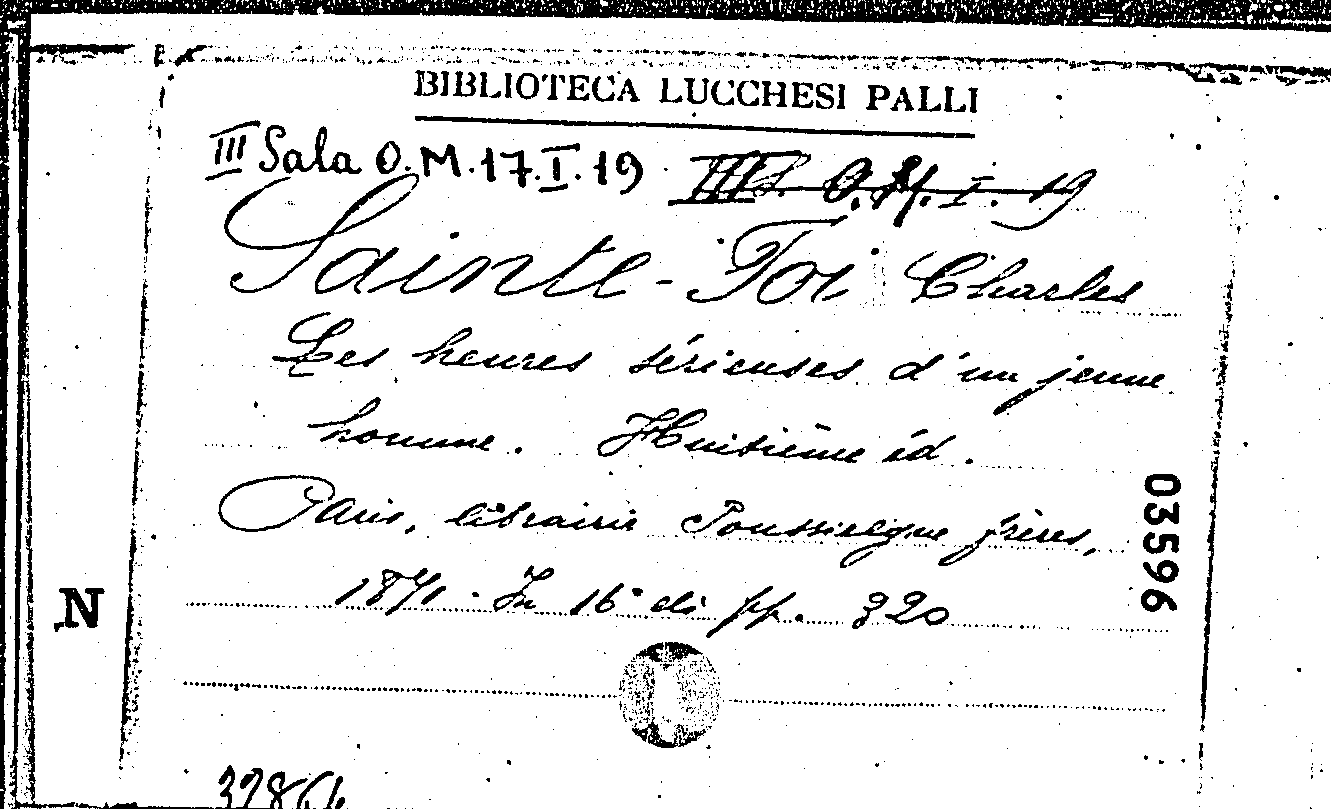 BIBLIOTECA LUCCHESI PALLI
III Sala O.M.17.I.19 III S. O.M. I. 19
Sainte-Foi Charles
Les heures sérieuses d'un jeune
homme. Huitième éd.
Paris, librairie Poussielgue frères,
1871. In 16° di pp. 320
03596
N